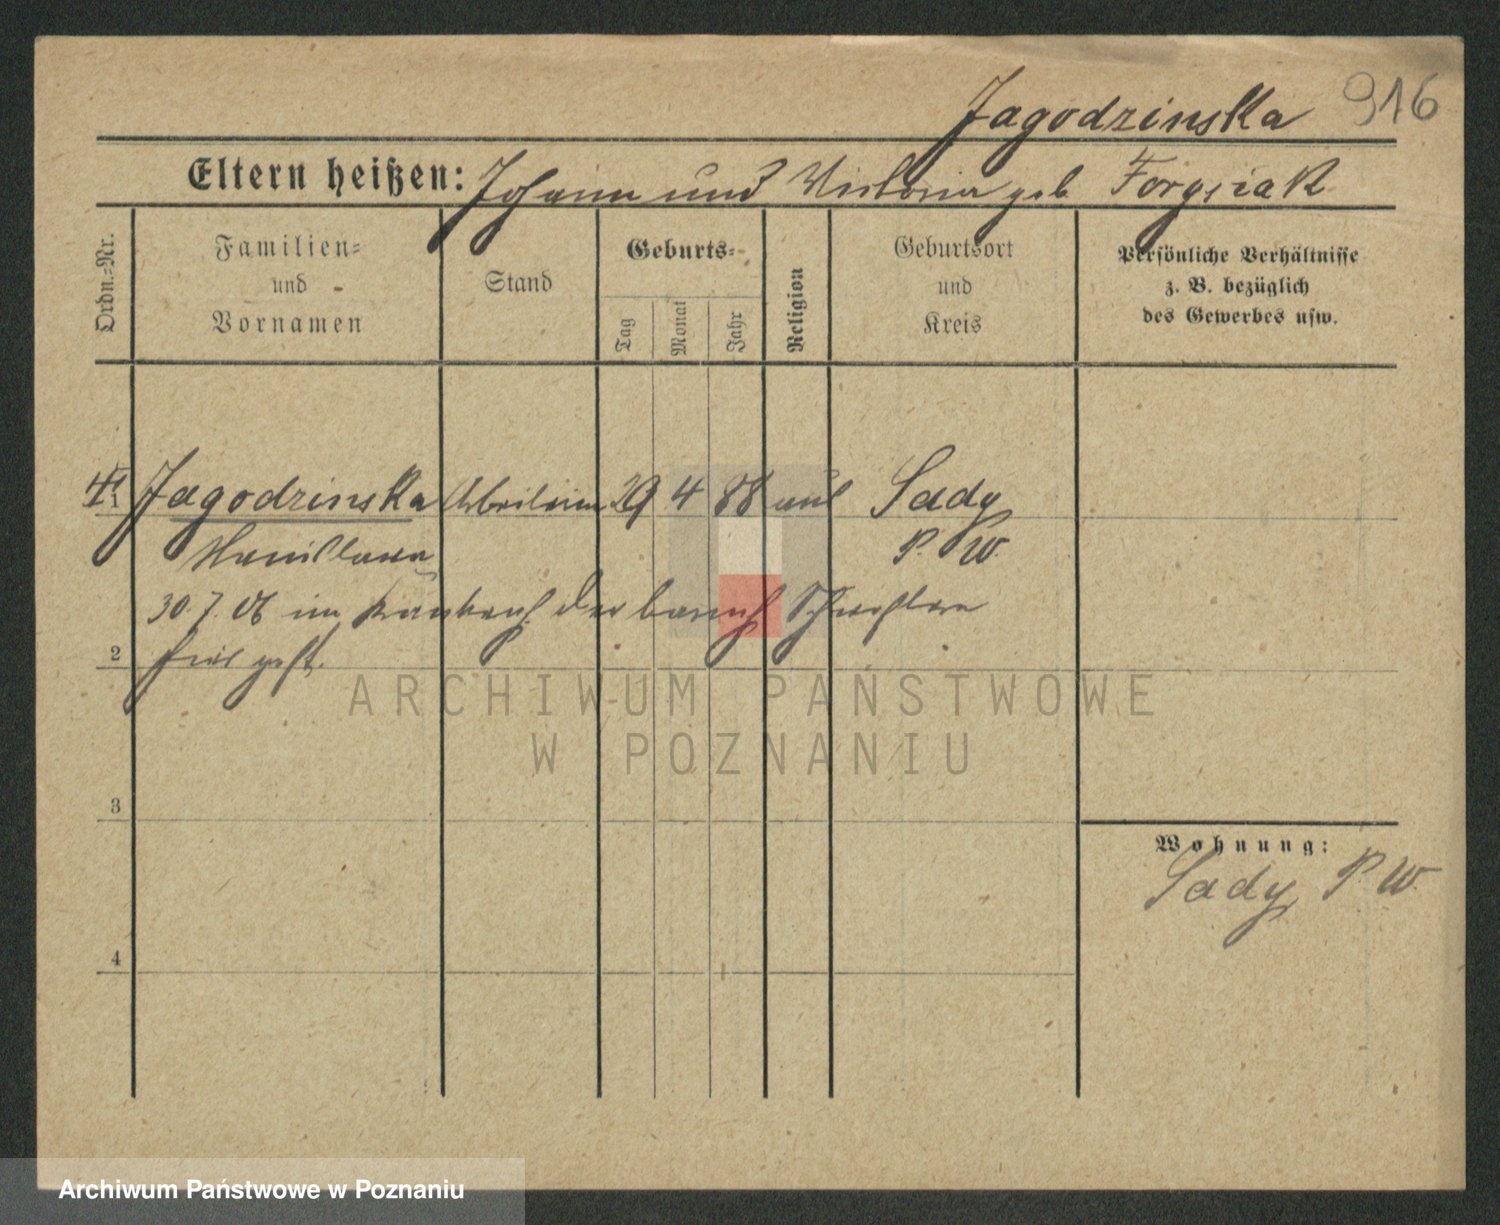 Jagodzinska 916
Eltern heißen: Johann und Victoria geb
Ordn.-Nr.
Familien-
und
Vornamen
Stand
Geburts-
Tag
Monat
Jahr
Religion
Geburtsort
und
Kreis
Persönliche Verhältnisse
z. B. bezüglich
des Gewerbes usw.
1 Jagodzinska Arbeiterin 29 4 88 Sady
P. W.
30.7.06 im der barmh Schwestern
2 gest.
3
4
Wohnung:
Sady, P. W.
ARCHIWUM PAŃSTWOWE
W POZNANIU
Archiwum Państwowe w Poznaniu